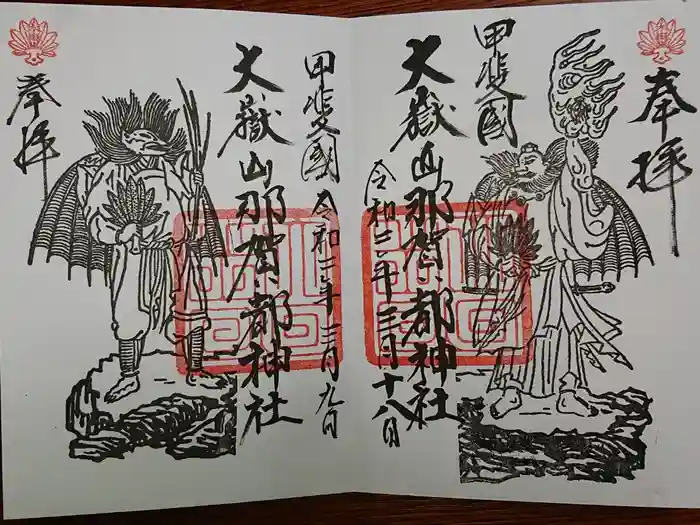 奉拝
甲斐国
大嶽山那賀都神社
令和三年三月十八日
甲斐国
大嶽山那賀都神社
令和三年三月九日
奉拝